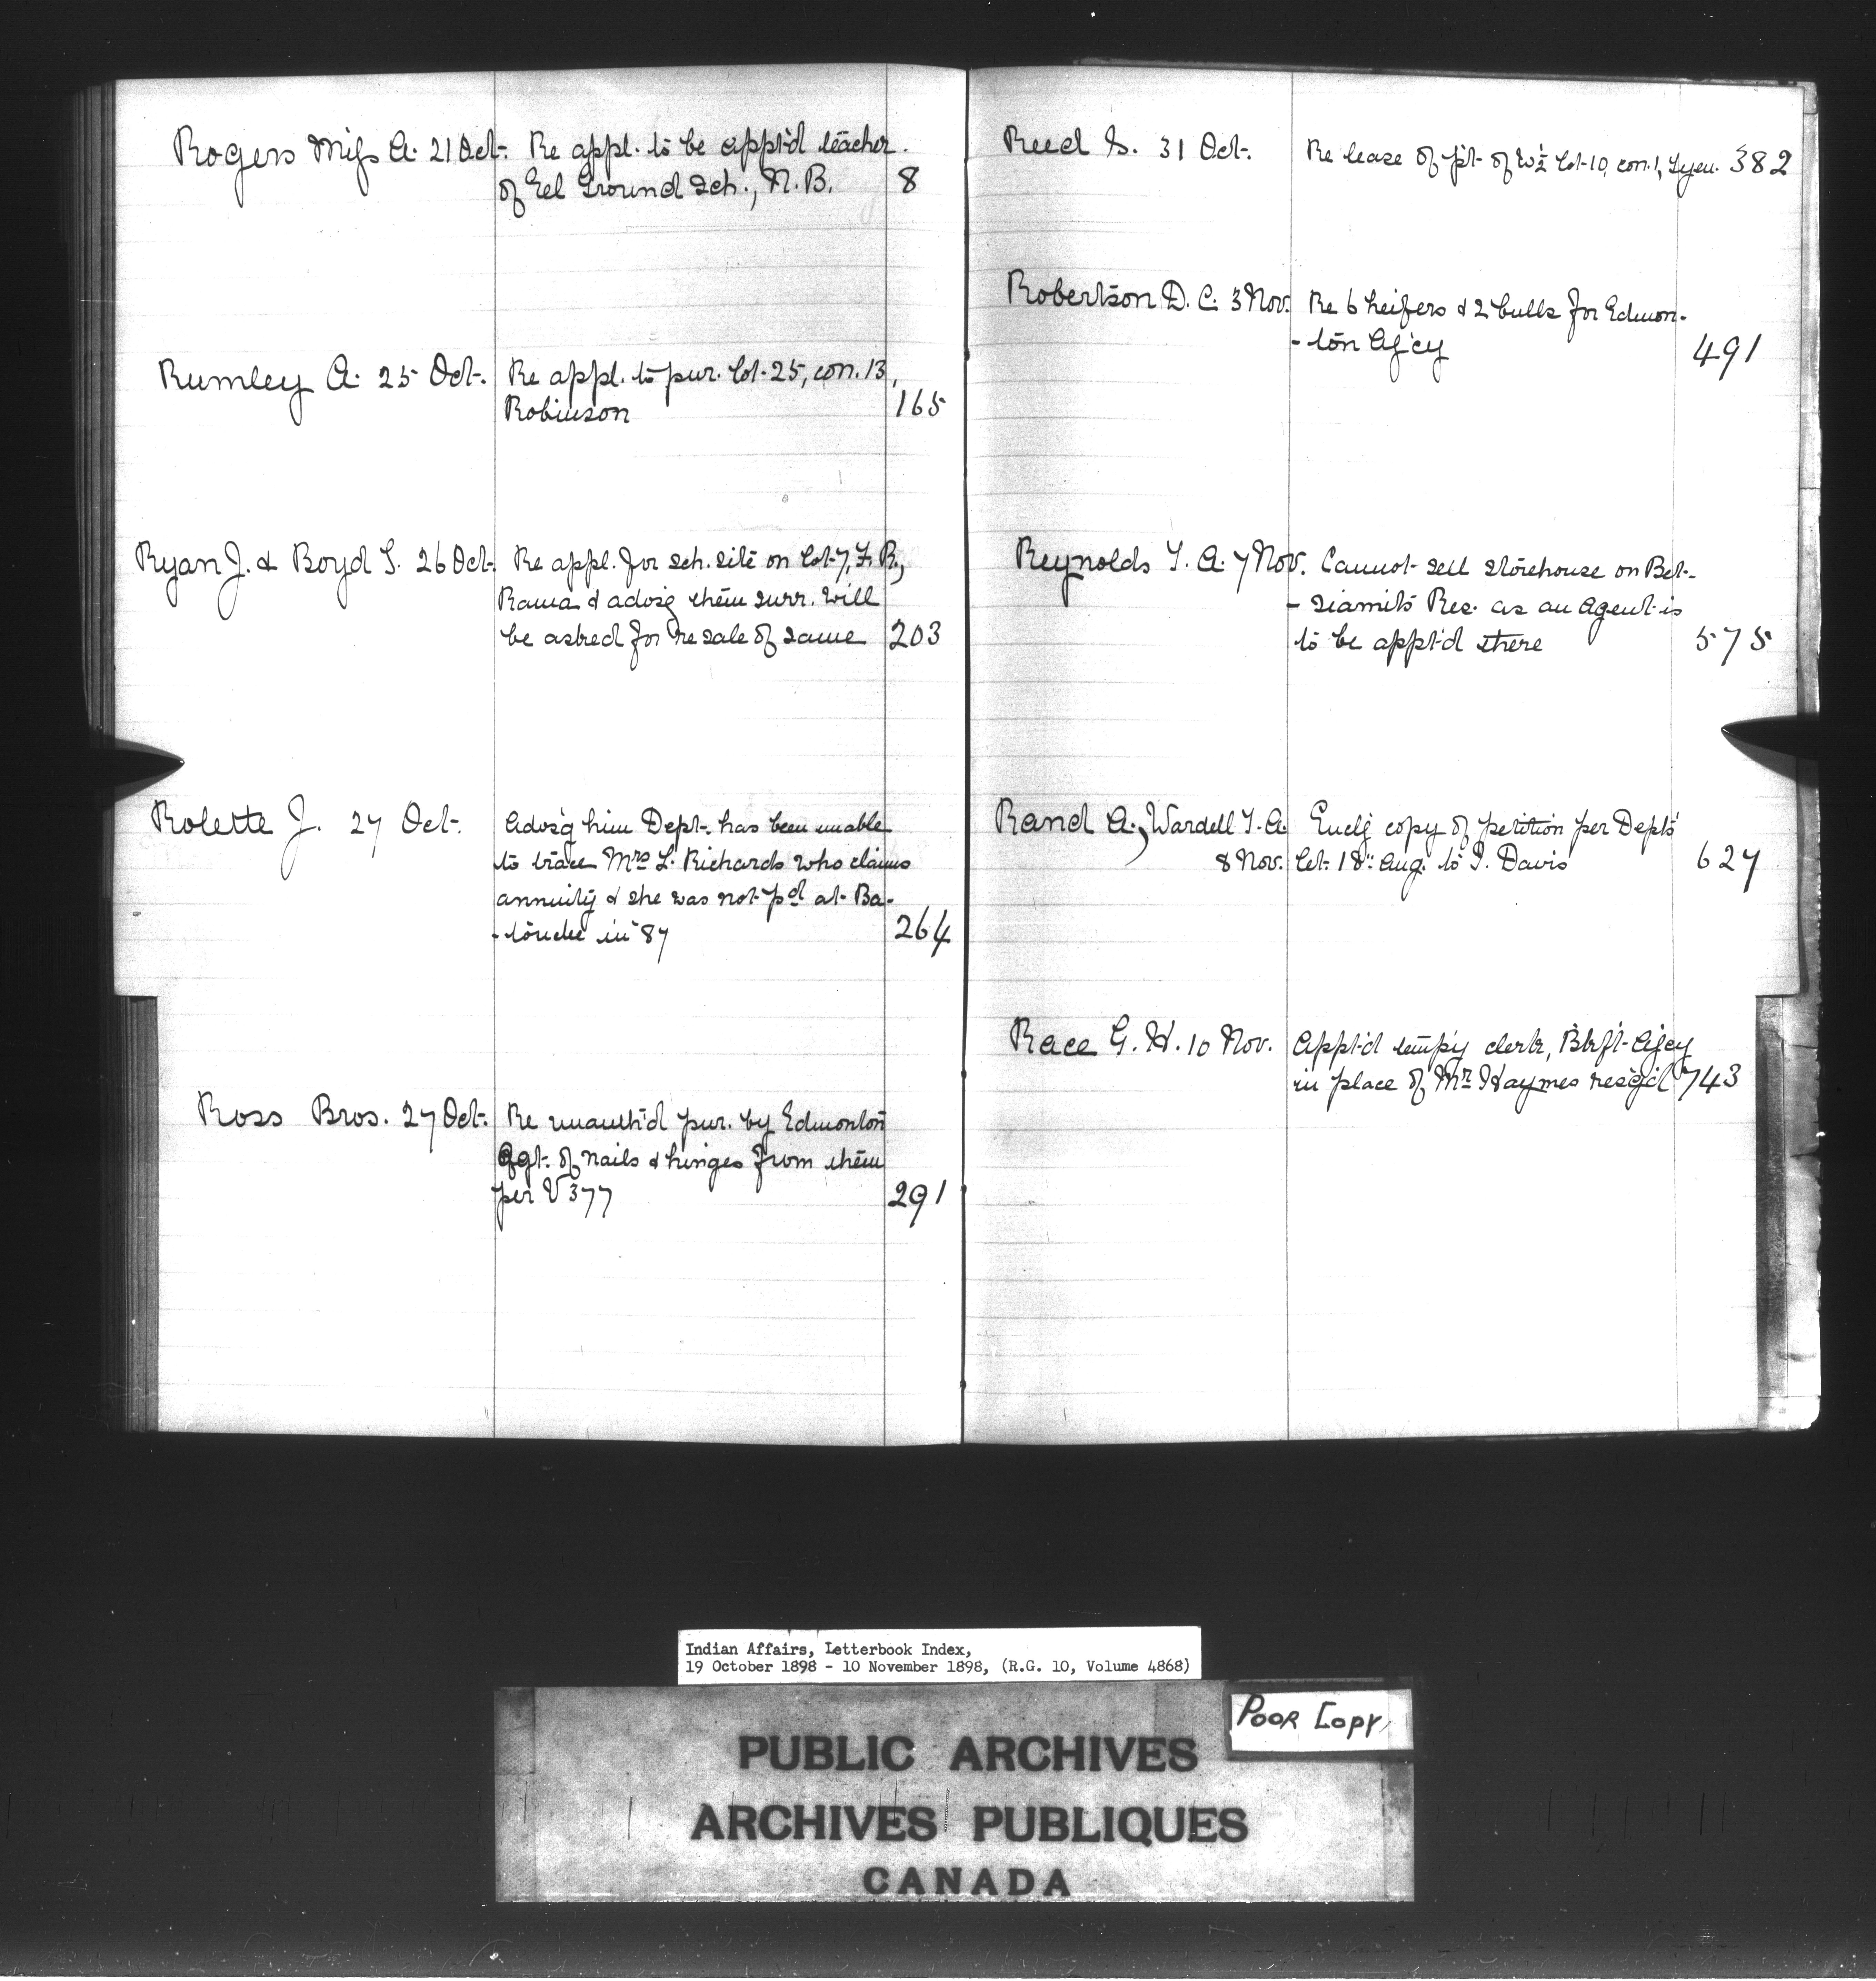 Rogers Miss A. 21 Oct. Re appl. to be appt'd teacher
of Eel Ground Sch., N.B. 8
Rumley A. 25 Oct. Re appl. to pur. lot 25, con. 13,
Robinson 165
Ryan J. & Boyd S. 26 Oct. Re appl. for sch. site on lot 7, F. R.,
Rama & advs'g them surr. will
be asked for re sale of same 203
Rolette J. 27 Oct. Advs'g him Dept. has been unable
to trace Mrs L. Richards who claims
annuity & she was not p'd at Ba-
-touche in '87 264
Ross Bros. 27 Oct. Re unauth'd pur. by Edmonton
Agt. of nails & hinges from them
per V 377 291
Reed S. 31 Oct. Re lease of pt. of W½ lot 10, con. 1, 382
Robertson D. C. 3 Nov. Re 6 heifers & 2 bulls for Edmon-
-ton Ag'cy 491
Reynolds T. A. 7 Nov. Cannot sell storehouse on Bet-
-siamits Res. as an Agent is
to be appt'd there 575
Rand A., Wardell T. A. Encl'g copy of petition per Dept's
8 Nov. let. 18th Aug. to I. Davis 627
Race G. H. 10 Nov. Appt'd temp'y clerk, Bkft. Ag'cy
in place of Mr Haymes resg'd 743
Indian Affairs, Letterbook Index,
19 October 1898 - 10 November 1898, (R.G. 10, Volume 4868)
Poor Copy
PUBLIC ARCHIVES
ARCHIVES PUBLIQUES
CANADA